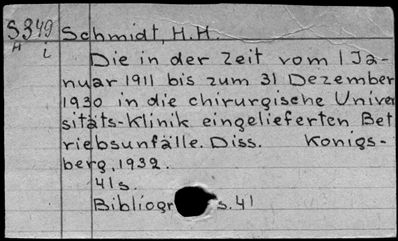 S349 Schmidt, H.H.
A i
Die in der Zeit vom 1 Ja-
nuar 1911 bis zum 31 Dezember
1930 in die chirurgische Univer
sitäts-Klinik eingelieferten Bet
riebsunfälle. Diss. Konigs-
berg, 1932.
41s.
Bibliogr s.41